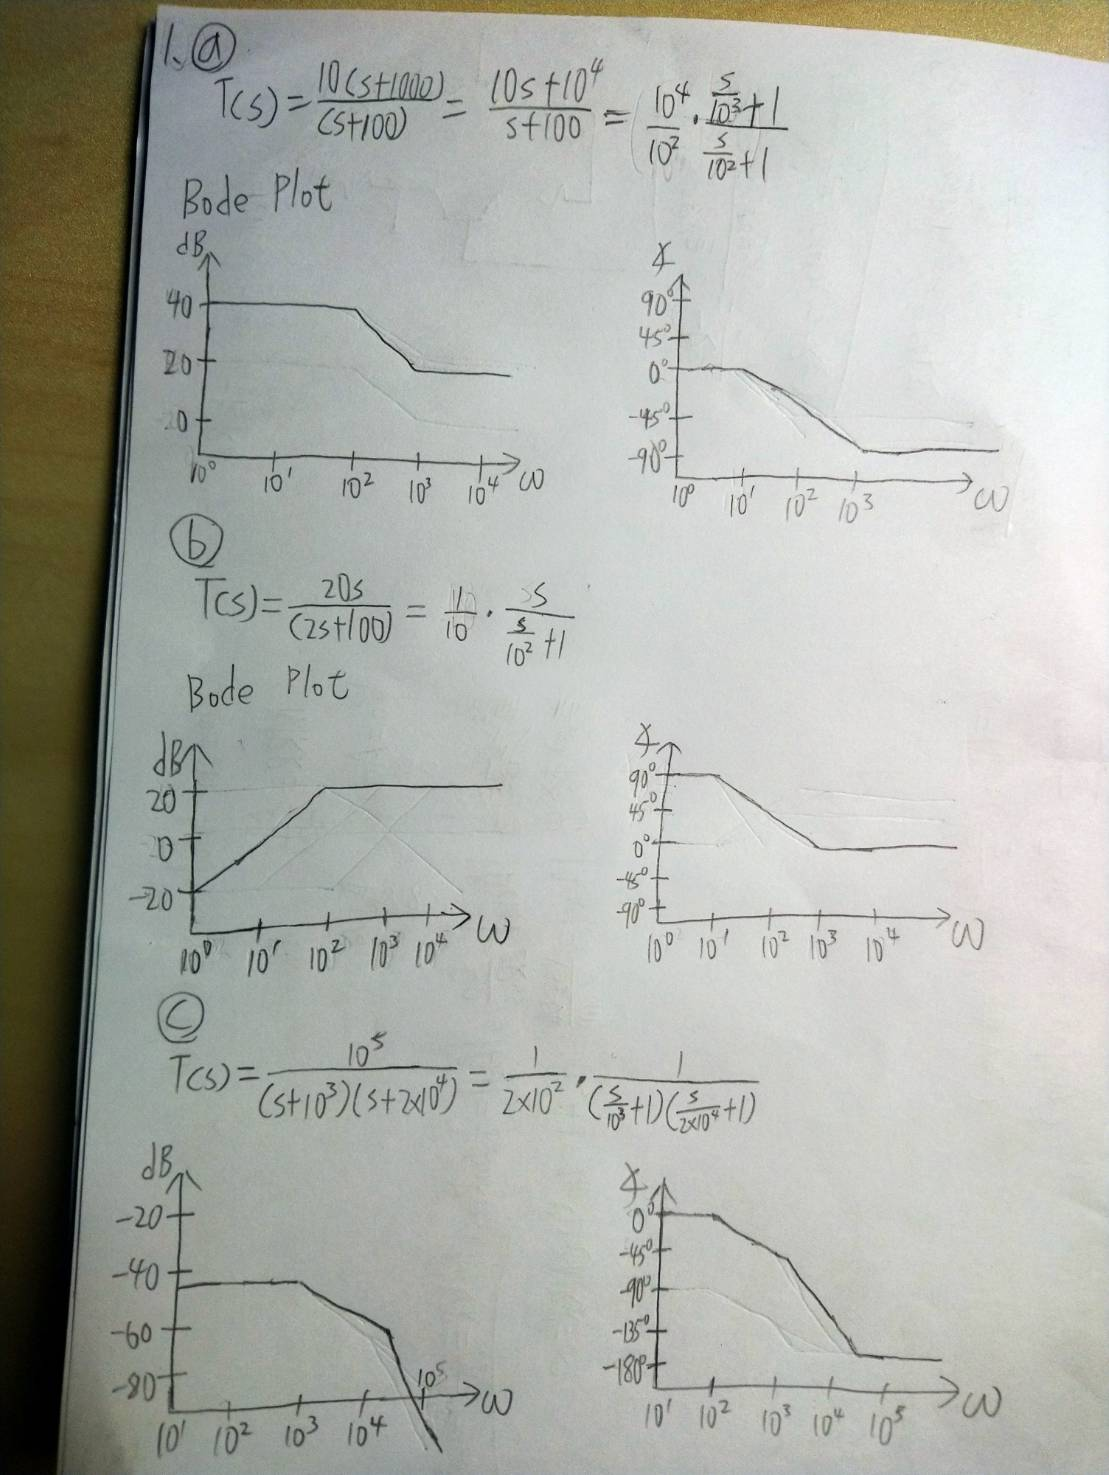 1. ⓐ
T(s) = 10(s+1000)/(s+100) = (10s+10⁴)/(s+100) = 10⁴/10² · (s/10³+1)/(s/10²+1)
Bode Plot
dB
40
20
-20
10⁰ 10¹ 10² 10³ 10⁴ ω
∡
90°
45°
0°
-45°
-90°
10⁰ 10¹ 10² 10³ ω
ⓑ
T(s) = 20s/(2s+100) = 1/10 · s/(s/10²+1)
Bode Plot
dB
20
0
-20
10⁰ 10¹ 10² 10³ 10⁴ ω
∡
90°
45°
0°
-45°
-90°
10⁰ 10¹ 10² 10³ 10⁴ ω
ⓒ
T(s) = 10⁵/((s+10³)(s+2×10⁴)) = 1/(2×10²) · 1/((s/10³+1)(s/(2×10⁴)+1))
dB
-20
-40
-60
-80
10¹ 10² 10³ 10⁴ 10⁵ ω
∡
0°
-45°
-90°
-135°
-180°
10¹ 10² 10³ 10⁴ 10⁵ ω